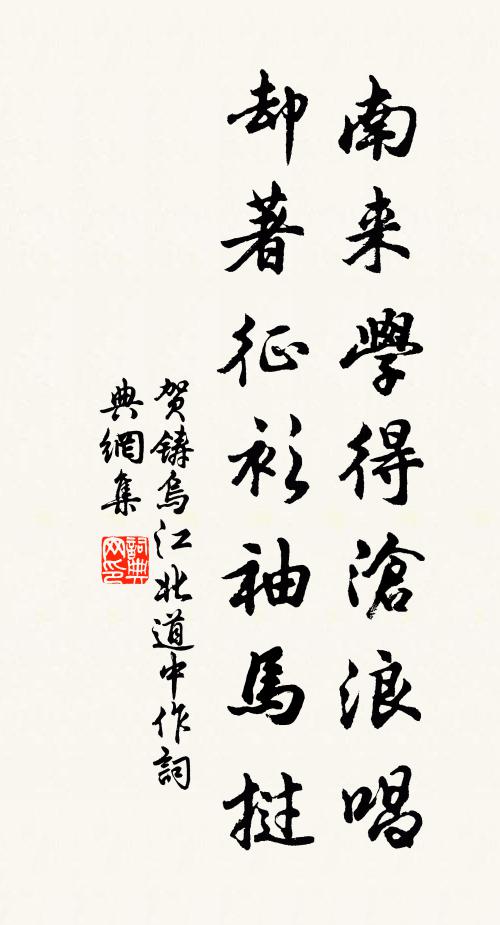 南来學得滄浪唱
却著征衫袖馬撾
賀鑄烏江北道中作詞
典網集
詞典网印